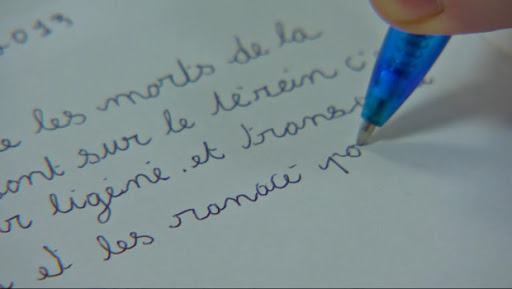 2013
les morts de la
ont sur le térein
ligérie. et trans
et les ramacé po